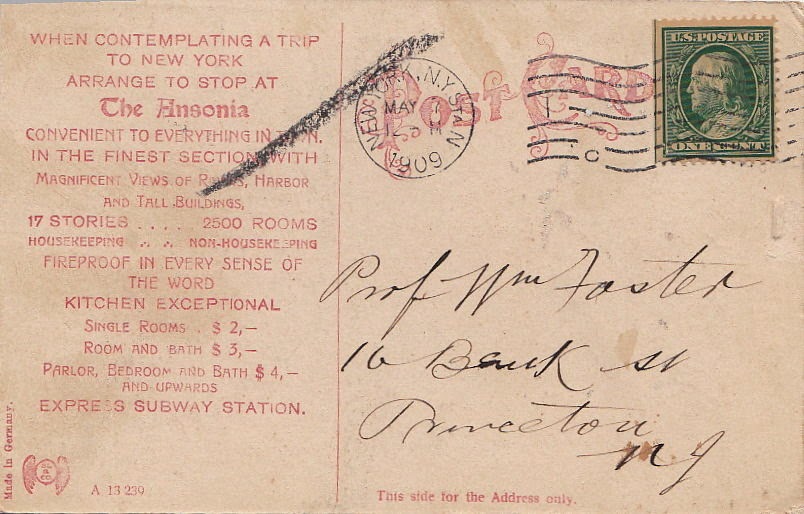 WHEN CONTEMPLATING A TRIP
TO NEW YORK
ARRANGE TO STOP AT
The Ansonia
CONVENIENT TO EVERYTHING IN TOWN.
IN THE FINEST SECTION WITH
MAGNIFICENT VIEWS OF RIVERS, HARBOR
AND TALL BUILDINGS,
17 STORIES .... 2500 ROOMS
HOUSEKEEPING .. .. NON-HOUSEKEEPING
FIREPROOF IN EVERY SENSE OF
THE WORD
KITCHEN EXCEPTIONAL
SINGLE ROOMS . $ 2,—
ROOM AND BATH $ 3,—
PARLOR, BEDROOM AND BATH $ 4,—
AND UPWARDS
EXPRESS SUBWAY STATION.
Made in Germany.
A 13 239
POST CARD
NEW YORK, N.Y. STA. N
MAY
1909
C
U.S. POSTAGE
ONE CENT
Prof Wm Foster
16 Bank st
Princeton
N J
This side for the Address only.